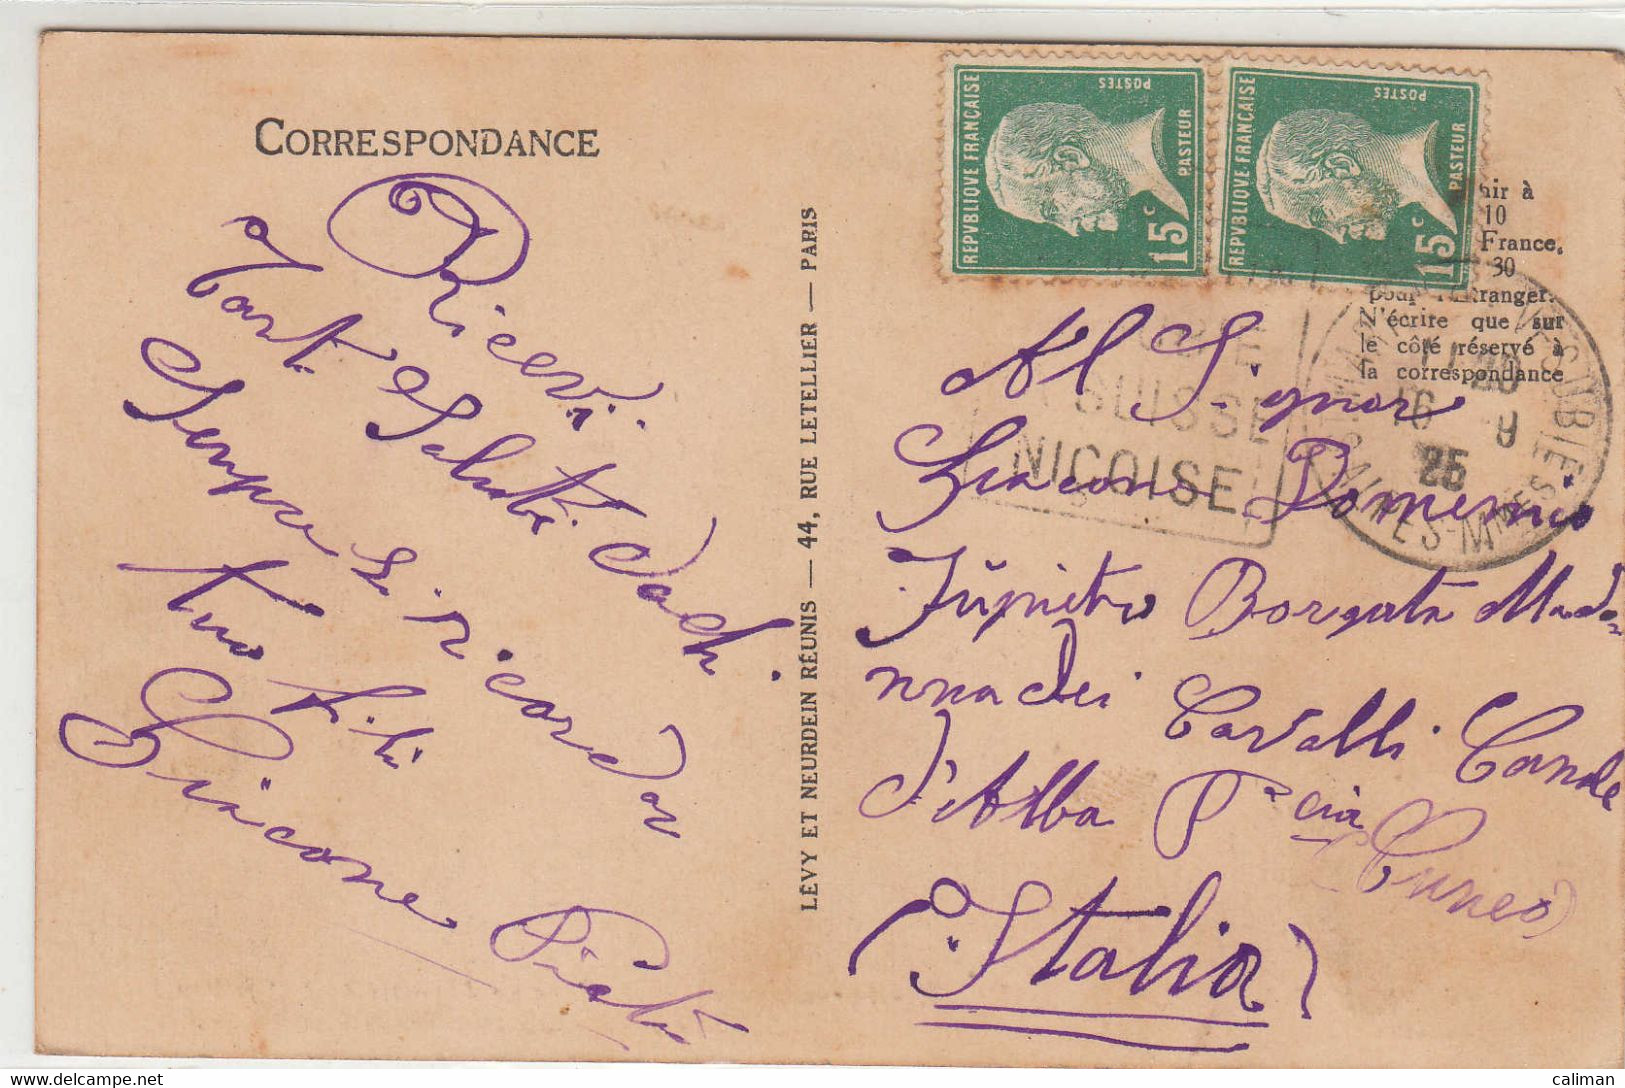 CORRESPONDANCE
Ricevi
Tant Saluti dachi
Sempre Si ricordar
tuo
Giacone
LÉVY ET NEURDEIN RÉUNIS — 44, RUE LETELLIER — PARIS
REPVBLIQVE FRANÇAISE
POSTES
PASTEUR
15c
REPVBLIQVE FRANÇAISE
POSTES
PASTEUR
15c
à
10
France.
30
pour l'Etranger.
N'écrire que sur
le côté réservé à
la correspondance
SUISSE
NICOISE
16 9
25
Al Signor
Giacone Domenico
Borgata Mado
nna dei Cavalli Canale
d'Alba Pcia Cuneo
(Italia)
caliman